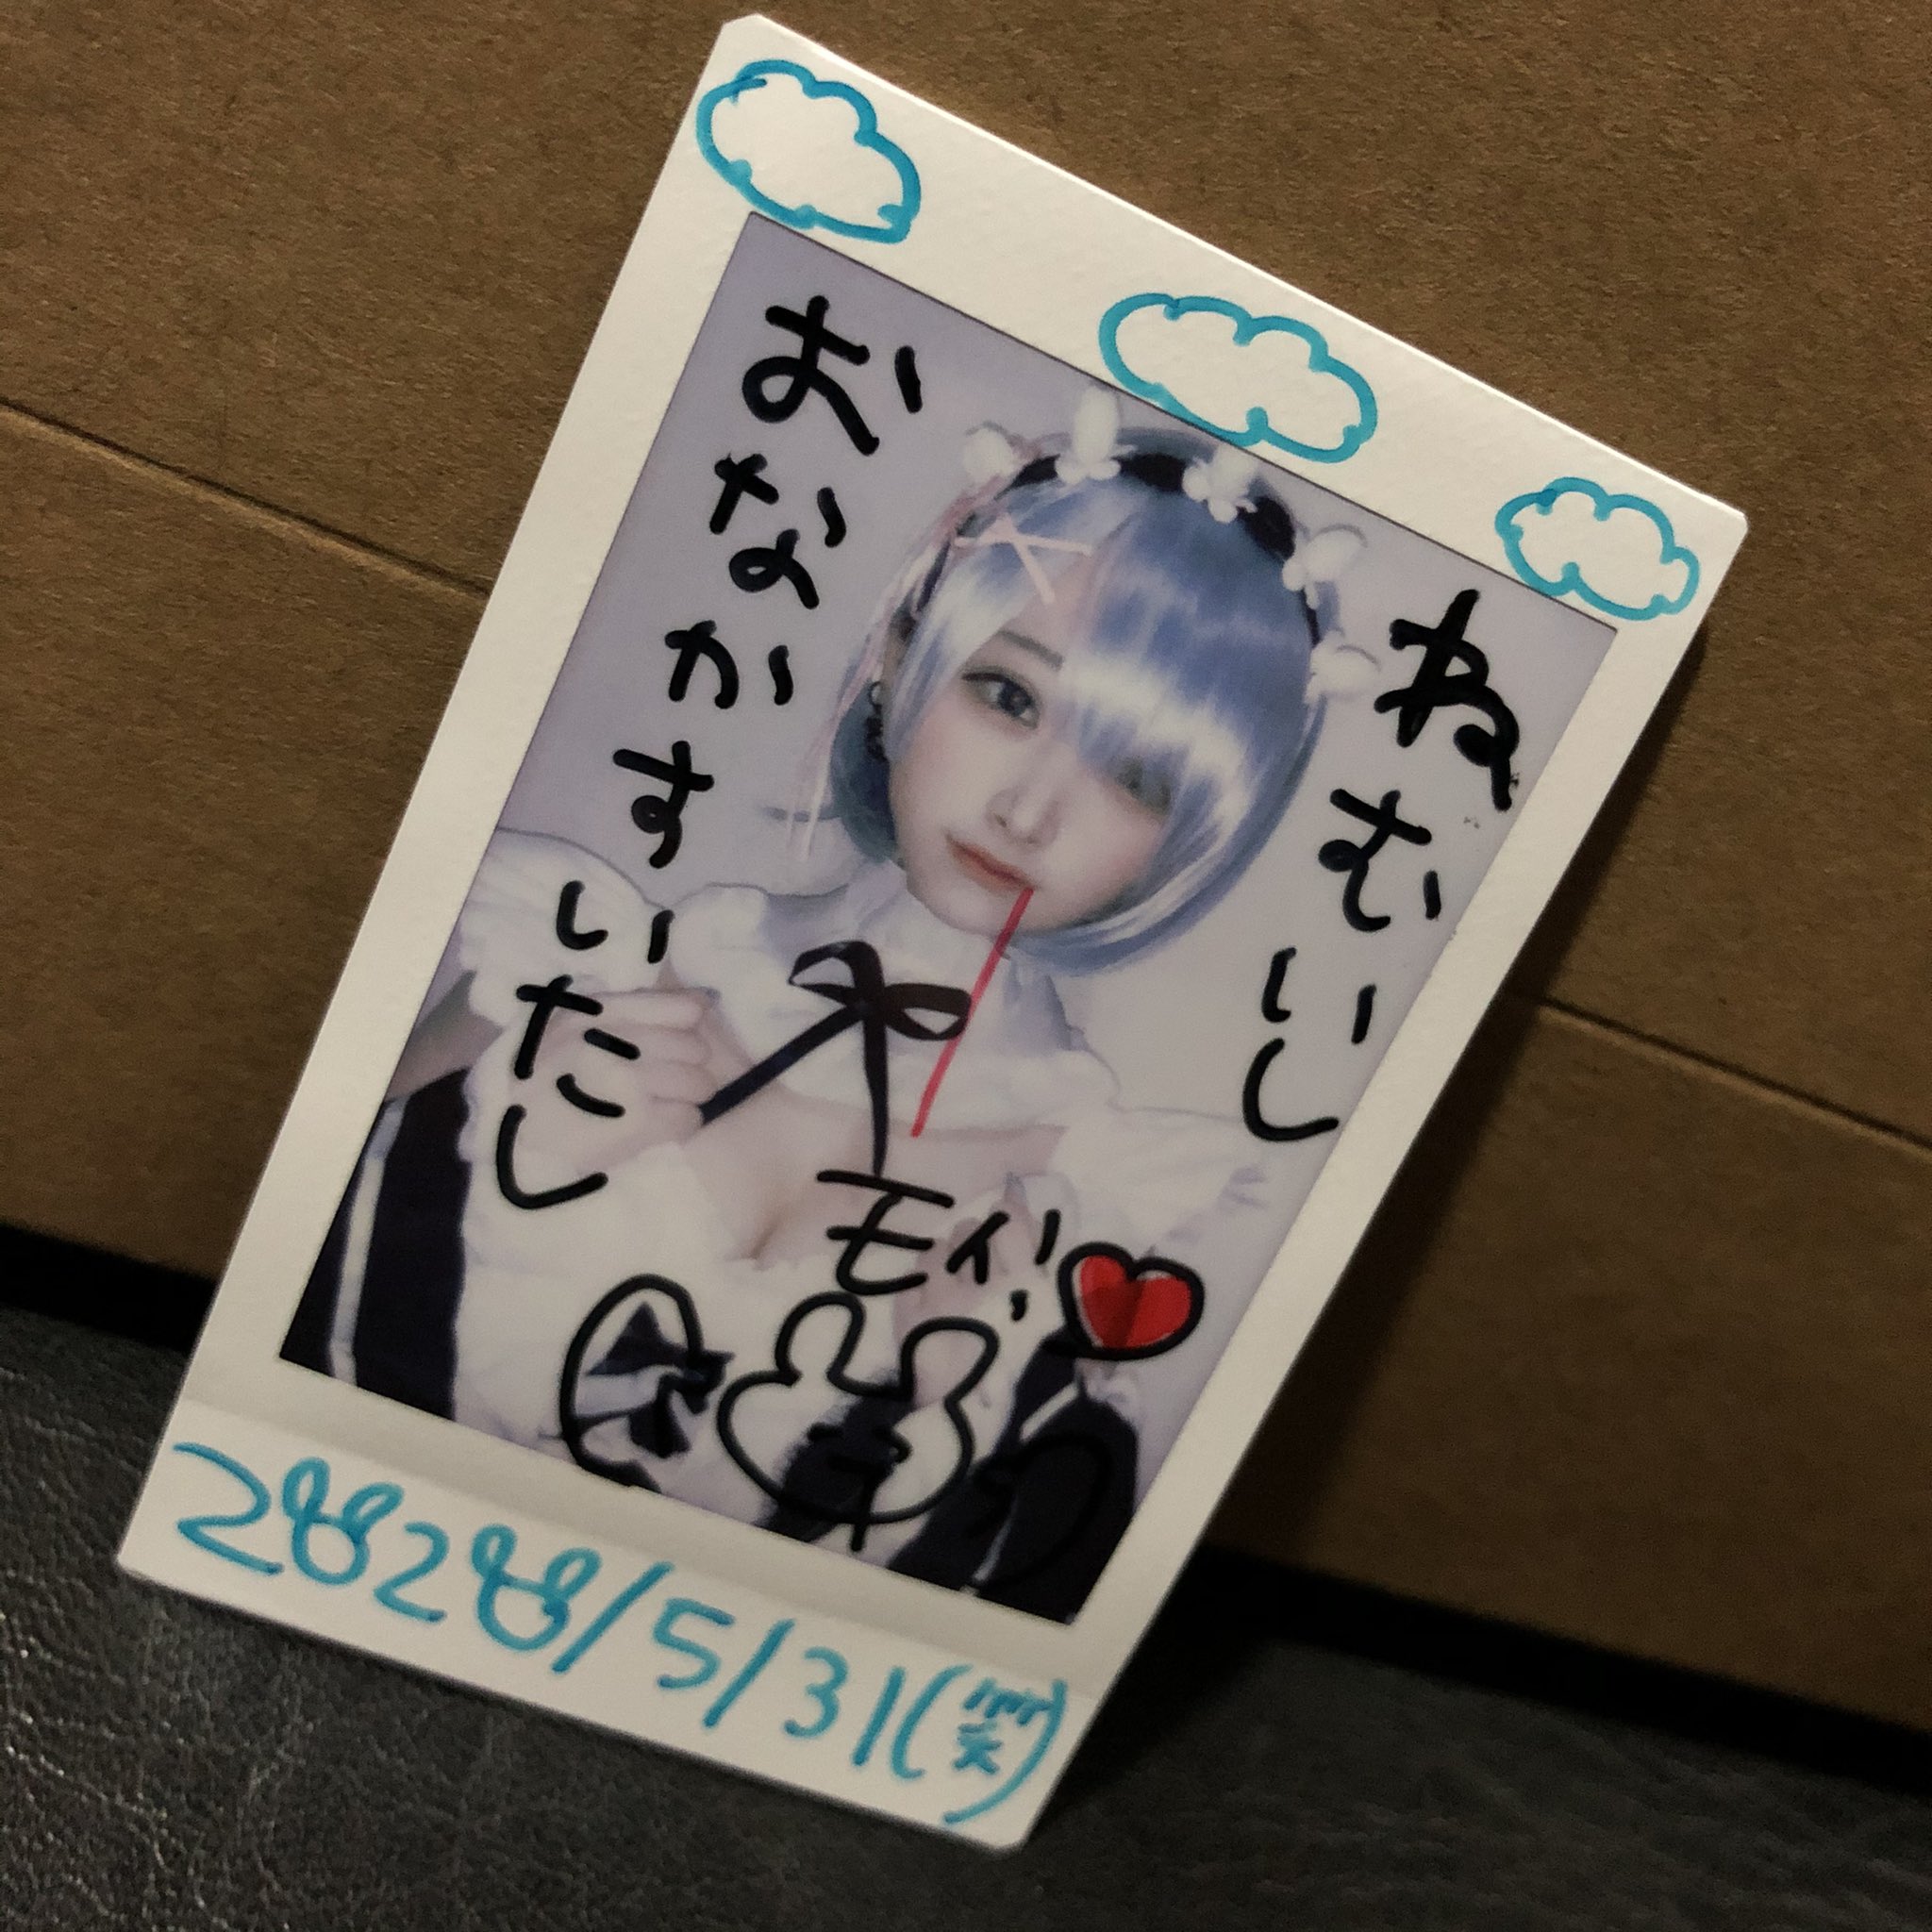 ねむいし
おなかすいたし
モイ!
2020/5/31(笑)